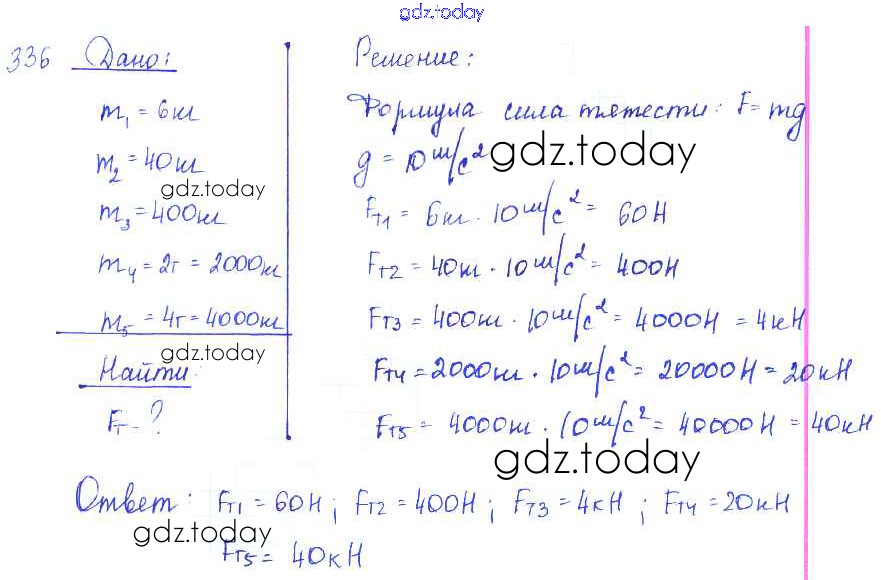 gdz.today
336 Дано:
m₁ = 6кг
m₂ = 40кг
gdz.today
m₃ = 400кг
m₄ = 2т = 2000кг
m₅ = 4т = 4000кг
gdz.today
Найти:
Fт - ?
Решение:
Формула сила тятести: F = mg
g = 10 м/с² gdz.today
Fт1 = 6кг · 10 м/с² = 60Н
Fт2 = 40кг · 10 м/с² = 400Н
Fт3 = 400кг · 10 м/с² = 4000Н = 4кН
Fт4 = 2000кг · 10 м/с² = 20000Н = 20кН
Fт5 = 4000кг · 10 м/с² = 40000Н = 40кН
gdz.today
Ответ: Fт1 = 60Н; Fт2 = 400Н; Fт3 = 4кН; Fт4 = 20кН
gdz.today
Fт5 = 40кН